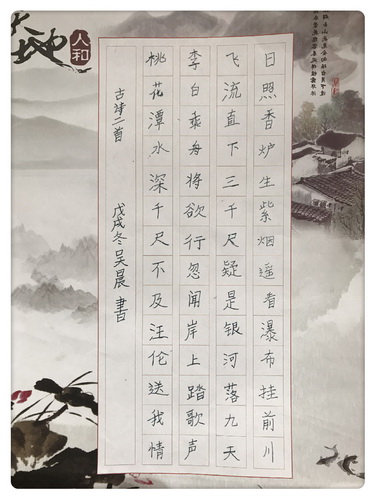 日照香炉生紫烟遥看瀑布挂前川
飞流直下三千尺疑是银河落九天
李白乘舟将欲行忽闻岸上踏歌声
桃花潭水深千尺不及汪伦送我情
古诗二首
戊戌冬吴晨书
人和